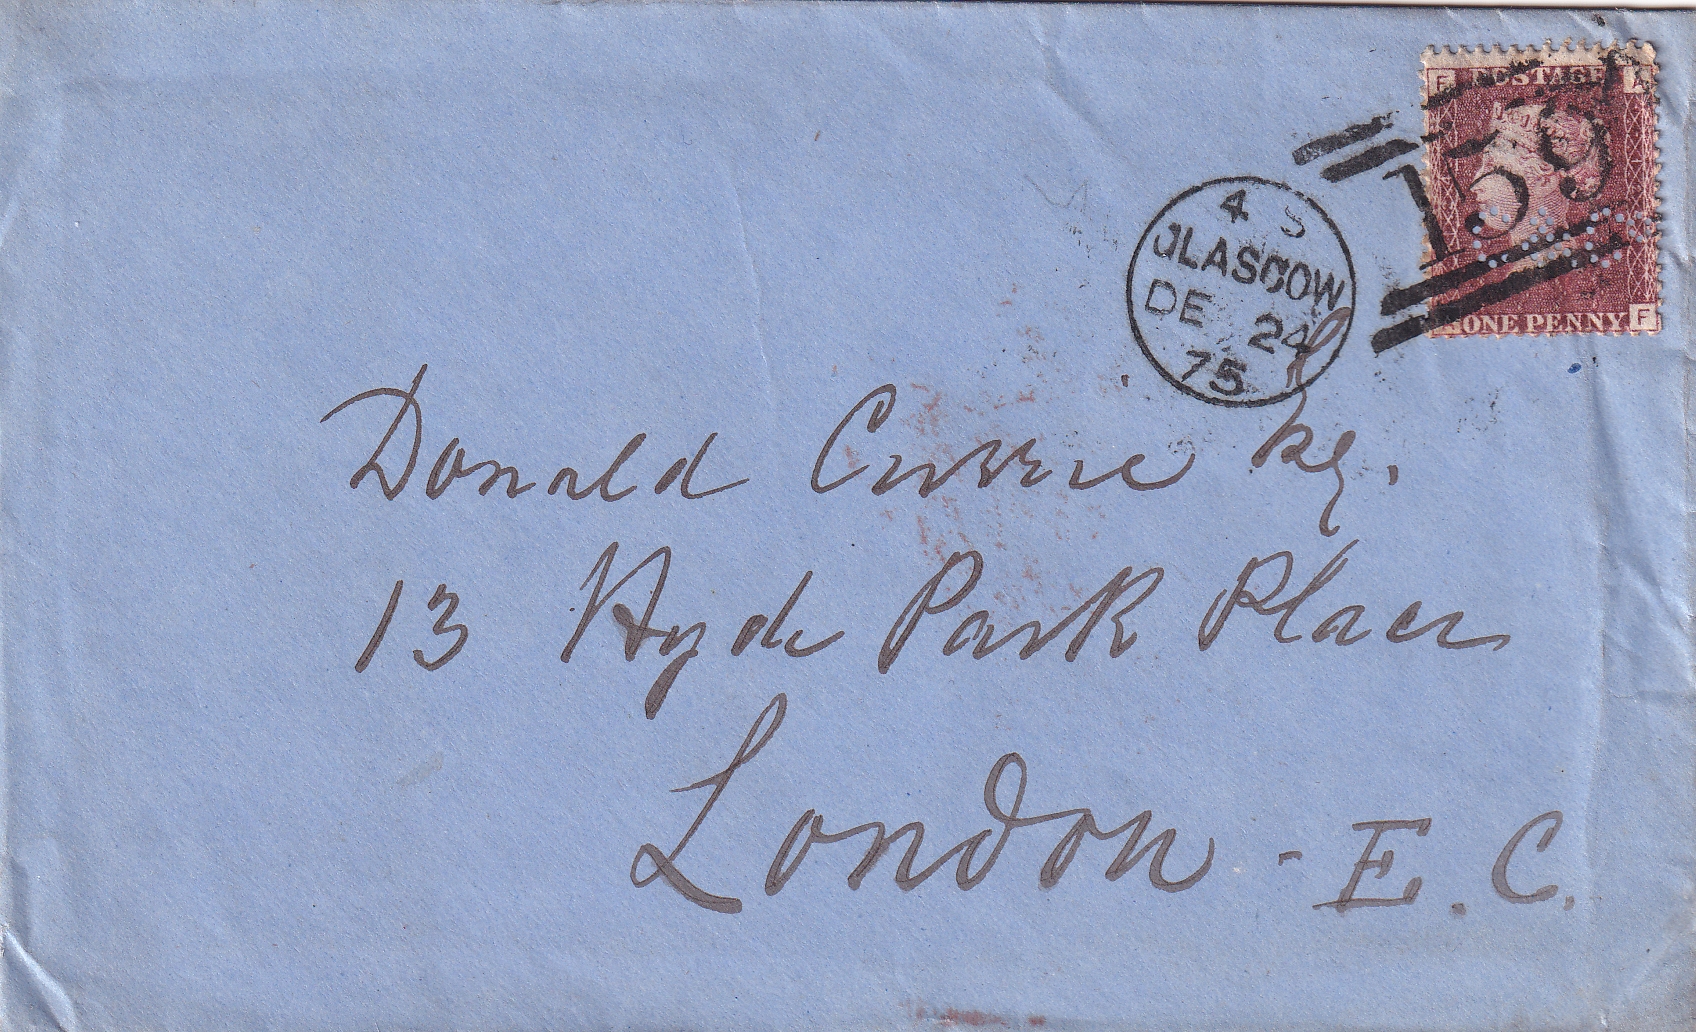 F POSTAGE A
159
ONE PENNY F
4 S
GLASGOW
DE 24
75
Donald Currie Esq.
13 Hyde Park Place
London - E. C.